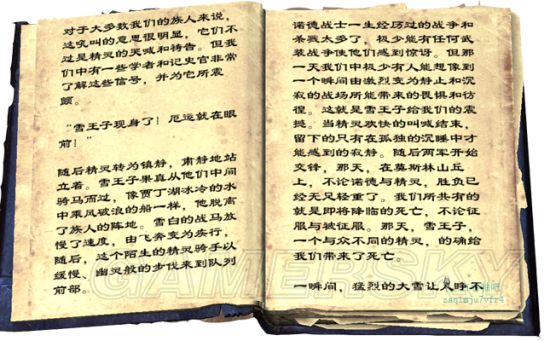 对于大多数我们的族人来说，
这吼叫的意思很明显，它们不
过是精灵的天喊和祷告。但我
们中有一些学者和记史官非常
了解这些信号，并为它所震
颤。
“雪王子现身了！厄运就在眼
前！”
随后精灵转为镇静，肃静地站
立着。雪王子果真从他们中间
骑马而过，像贾丁湖冰冷的水
中乘风破浪的船一样，他脱离
了族人的阵地。雪白的战马放
慢了速度，由飞奔变为疾行，
随后，这个陌生的精灵骑手以
缓慢、幽灵般的步伐来到队列
前部。
诺德战士一生经历过的战争和
杀戮太多了，极少能有任何武
装战争使他们感到惊讶。但那
一天我们中极少有人能想像到
一个瞬间由激烈变为静止和沉
寂的战场所能带来的畏惧和彷
徨。这就是雪王子给我们的震
撼。当精灵欢快的叫喊结束，
留下的只有在孤独的沉睡中才
能感到的寂静。随后两军开始
交锋，那天，在莫斯林山丘
上，不论诺德与精灵，胜负已
经无足轻重了。我们所共有的
就是即将降临的死亡，不论征
服与被征服。那天，雪王子，
一个与众不同的精灵，的确给
我们带来了死亡。
一瞬间，猛烈的大雪让人睁不
GAMERSKY
zaqimju7vfr4